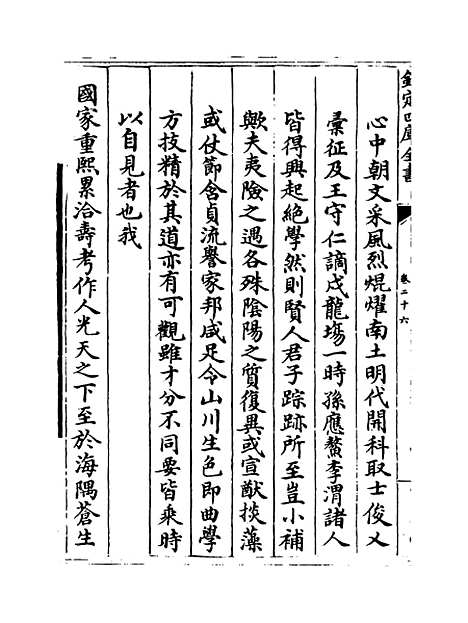 欽定四庫全書
卷二十六
心中朝文采風烈焜燿南土明代開科取士俊乂
彚征及王守仁謫戍龍塲一時孫應鰲李渭諸人
皆得興起絶學然則賢人君子踪跡所至豈小補
歟夫夷險之遇各殊陰陽之質復異或宣猷掞藻
或仗節含貞流譽家邦咸足令山川生色即曲學
方技精於其道亦有可觀雖才分不同要皆乘時
以自見者也我
國家重熙累洽壽考作人光天之下至於海隅蒼生